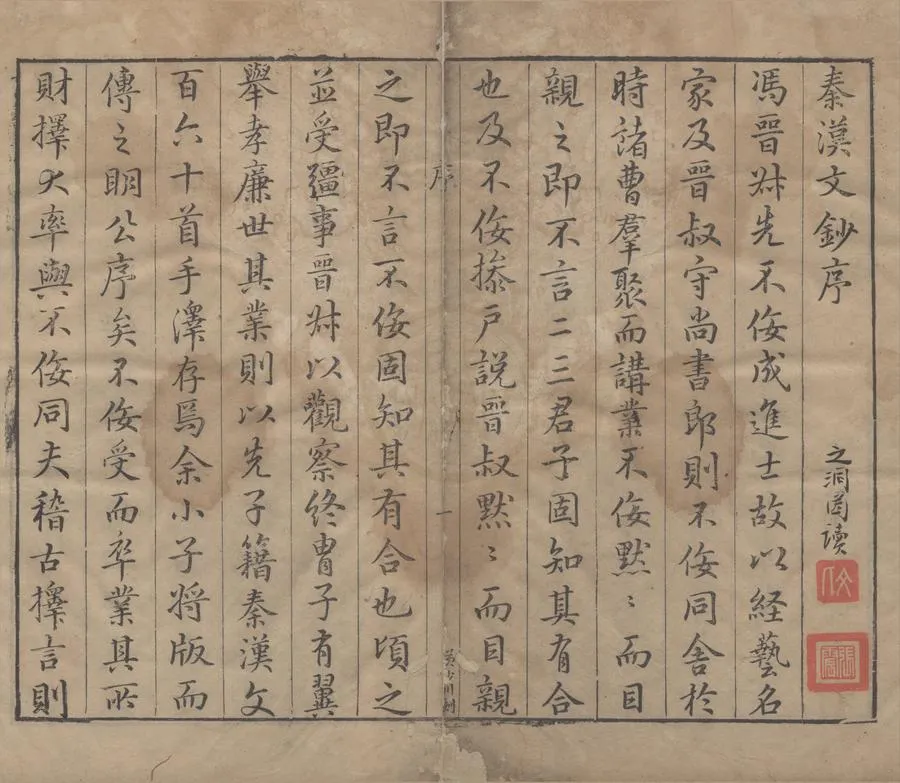 秦漢文鈔序
之洞閣讀
馮晉叔先不侫成進士故以經藝名
家及晉叔守尚書郎則不侫同舍於
時諸曹羣聚而講業不侫默〻而目
親之即不言二三君子固知其有合
也及不侫掾戶説晉叔默〻而目親
序
一
黃少川刻
之即不言不侫固知其有合也頃之
並受疆事晉叔以觀察終胄子有翼
舉孝廉世其業則以先子籍秦漢文
百六十首手澤存焉余小子將版而
傳之明公序矣不侫受而卒業其所
財擇大率與不侫同夫稽古擇言則